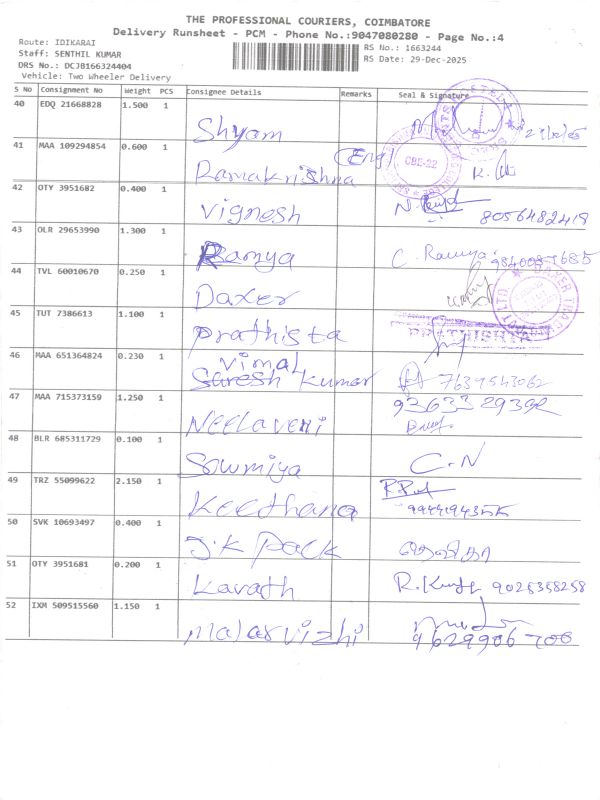 THE PROFESSIONAL COURIERS, COIMBATORE
Delivery Runsheet - PCM - Phone No.:9047080280 - Page No.:4
Route: IDIKARAI
RS No.: 1663244
Staff: SENTHIL KUMAR
RS Date: 29-Dec-2025
DRS No.: DCJB166324404
Vehicle: Two Wheeler Delivery
S No Consignment No Weight PCS Consignee Details Remarks Seal & Signature
40 EDQ 21668828 1.500 1 Shyam
41 MAA 109294854 0.600 1 Ramakrishna (Eng)
42 OTY 3951682 0.400 1 Vignesh 8056482419
43 OLR 29653990 1.300 1 Ramya C. Ramya
44 TVL 60010670 0.250 1 Daxer
45 TUT 7386613 1.100 1 Prathista
46 MAA 651364824 0.230 1 Vimal Suresh Kumar 7639543062
47 MAA 715373159 1.250 1 Neelaveni
48 BLR 685311729 0.100 1 Sowmiya C.N
49 TRZ 55099622 2.150 1 Keethana
50 SVK 10693497 0.400 1 J.K Pack
51 OTY 3951681 0.200 1 Kavath 9025358258
52 IXM 509515560 1.150 1 Malarvizhi